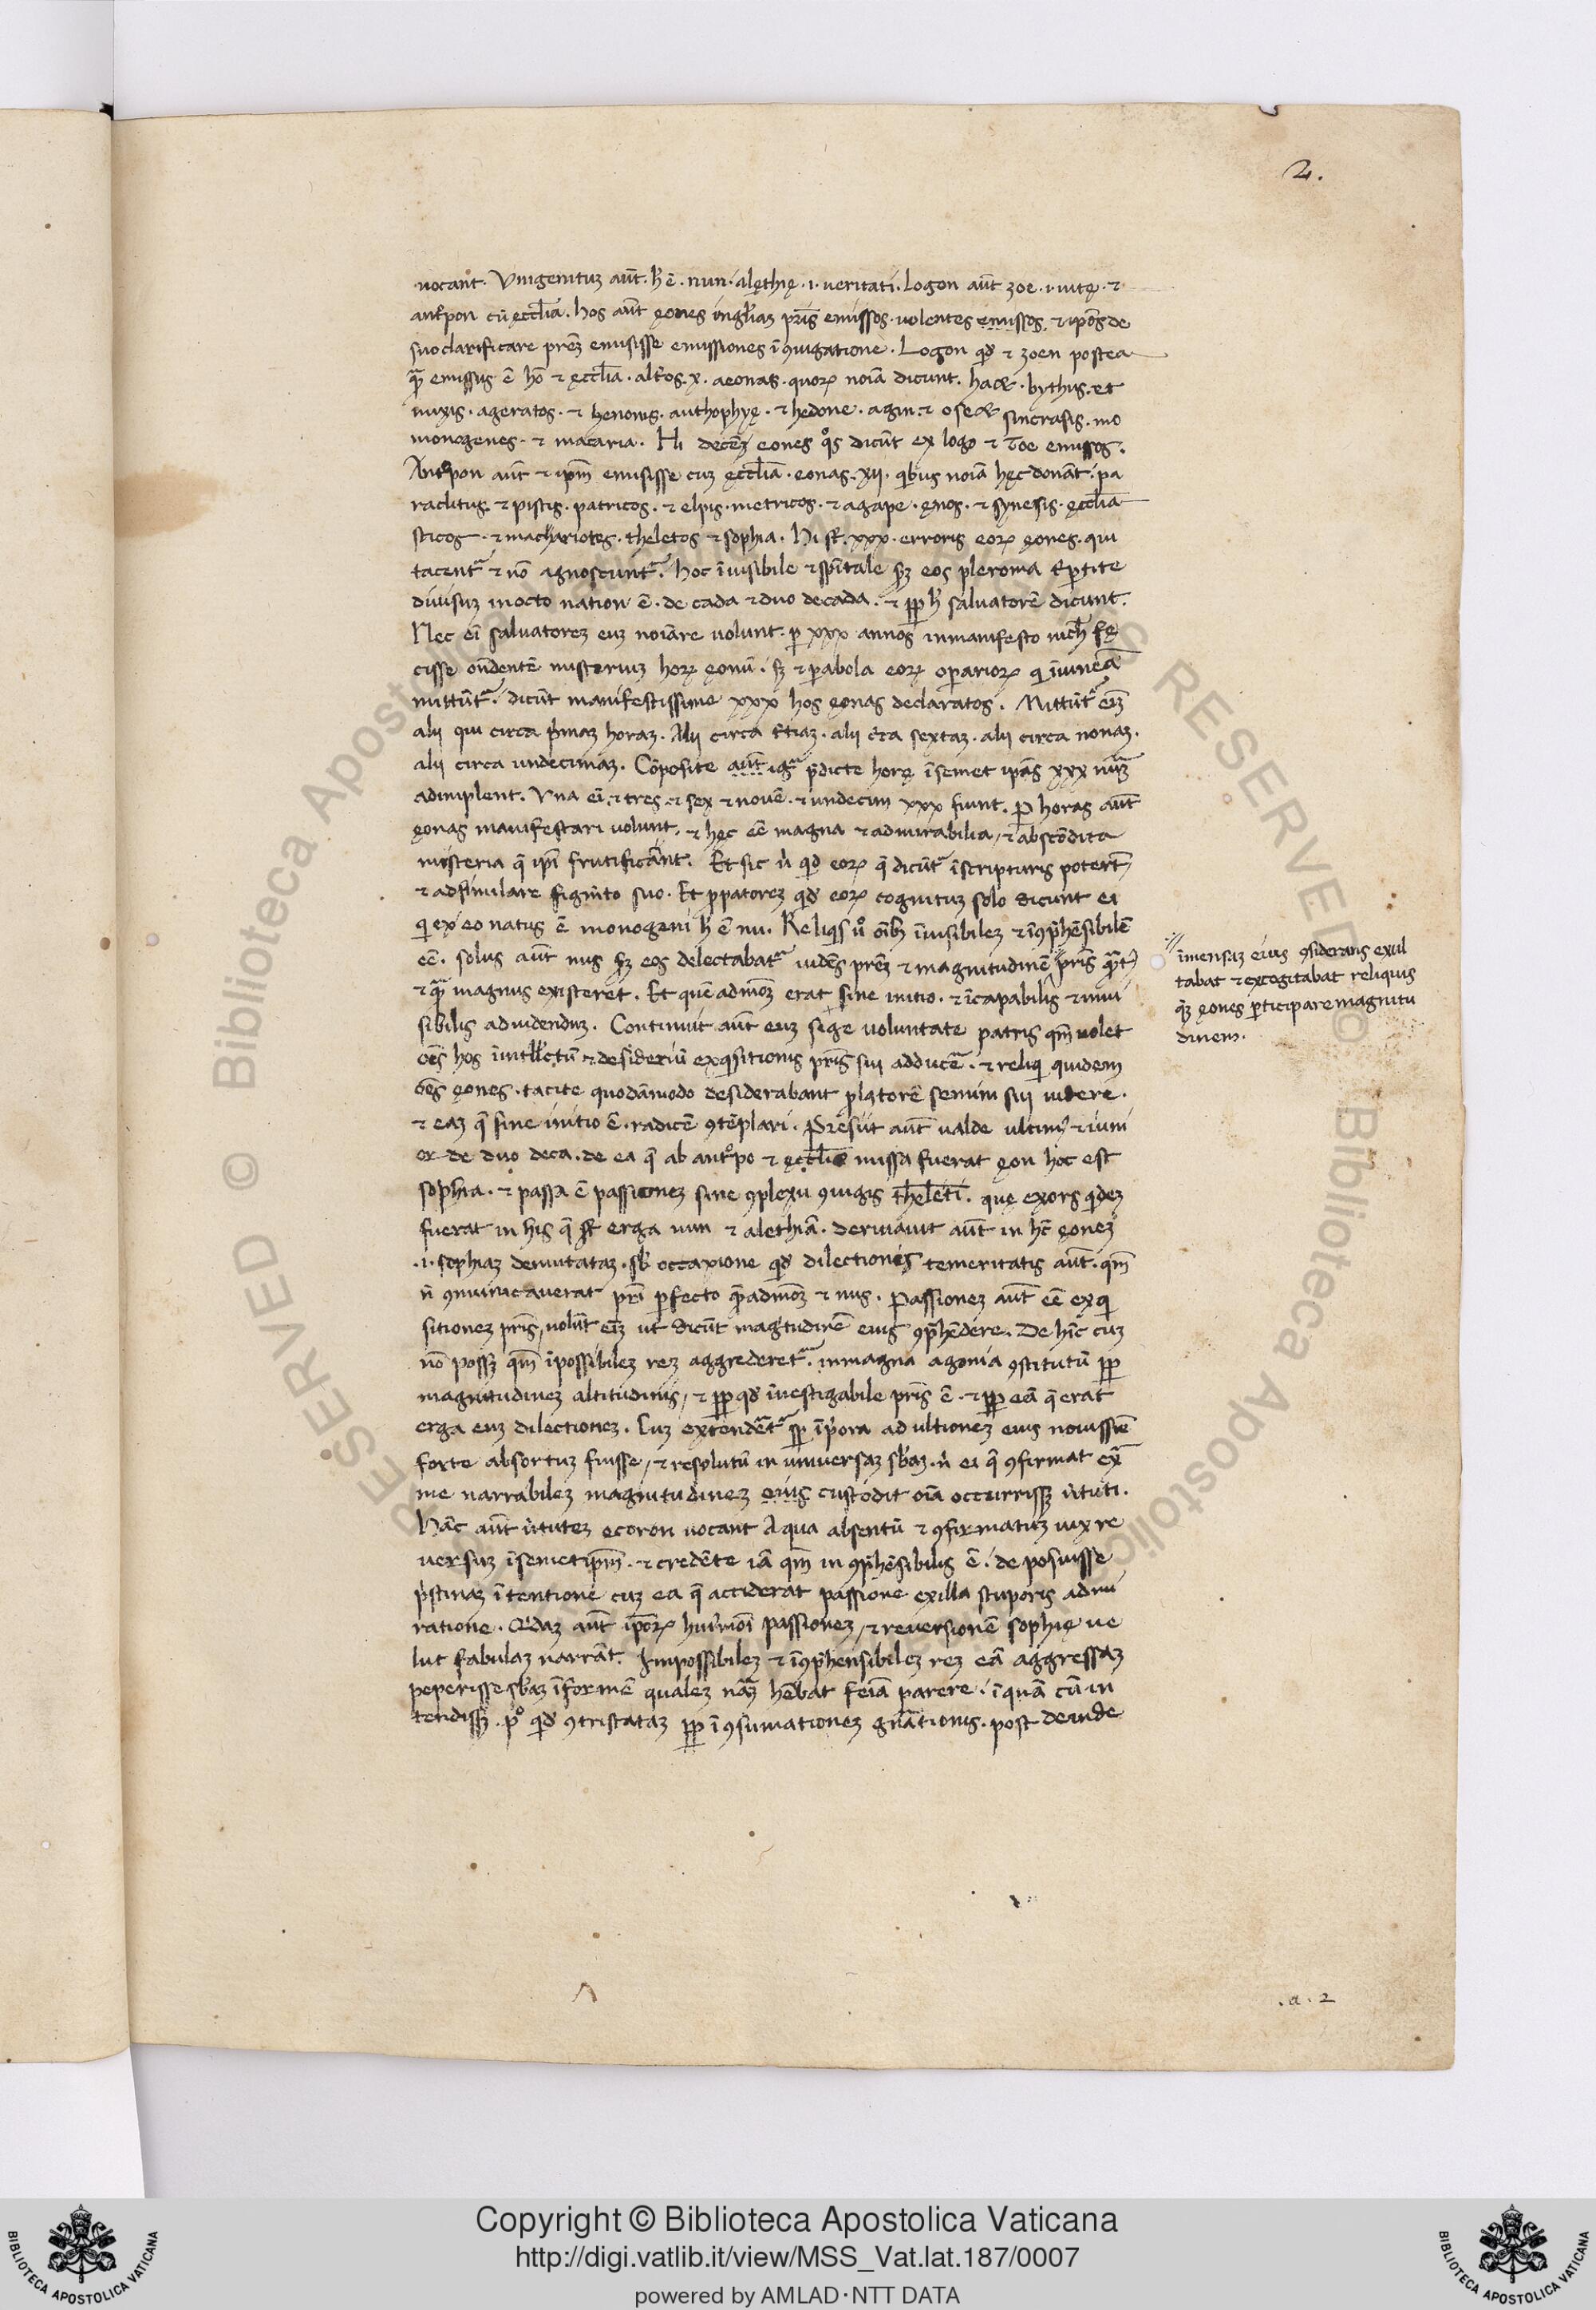 2.
vocant. Vnigenituz aūt. h̄ ē. nun. alęthię .i. veritati. Logon aūt zoe .i. vitę. ⁊
ant̊pon cū ęccl̄ia. hos aūt ęones in gl̄iaz pr̄is emissos. volentes emissos. ⁊ ip̄os de
suo clarificare prēz emisisse emissiones ī ꝯiugatione. Logon qd̄ ⁊ zoen postea
emissus ē hō ⁊ ęccl̄ia. alt̄os .x. aeonas. quoꝝ noīa dicunt. bythus. et
mixis. ageratos. ⁊ henosis. authophyę. ⁊ hędone. sincrasis. mo
monogenes. ⁊ macaria. Hi decēz eones q̊s dicūt ex logo ⁊ emissos.
Ant̊pon aūt ⁊ ip̄m emisisse cuz ęccl̄ia. eonas. xii. qbus noīa hęc donāt. pa
raclitus. ⁊ pistis. patricos. ⁊ elpis. metricos. ⁊ agape. ęnos. ⁊ synesis. ęccl̄ia
sticos. ⁊ machariotes. theletos ⁊ sophia. Hi sūt .xxx. erroris eoꝝ ęones. qui
tacent᷑ ⁊ nō agnoscunt᷑. hoc īvisibile ⁊ spītale eos pleroma tꝑtite
divisuz in octo nation ē. de cada ⁊ duo decada. ⁊ ꝓp h̄ salvatorē dicunt.
Nec eī salvatorez euz noīare volunt. ꝑ xxx annos in manifesto nich̄ fę
cisse oñdentē misteriuz hoꝝ ęonū. sz ⁊ ꝑabola eoꝝ oꝑarioꝝ q ī vineā
mittūt᷑. dicūt manifestissime xxx hos ęonas declaratos. Mittūt᷑ eīz
alij qui circa pͥmaz horaz. Alij circa t̄tiaz. alij cͥca sextaz. alij circa nonaz.
alij circa undecimaz. Cōposite aūt igͣ p̄dicte horę ī semet ip̄as xxx
adimplent. Vna eī. ⁊ tres. ⁊ sex ⁊ novē. ⁊ undecim xxx fiunt. Ꝑ horas aūt
ęonas manifestari volunt. ⁊ hęc eē magna ⁊ admirabilia, ⁊ abscōdita
misteria q̄ ip̄i frutificāt. Et sic qd̄ eoꝝ q̄ dicūt᷑ ī scripturis
⁊ adsimulare figmēto suo. Et ꝓpatorez qd̄ eoꝝ cognituz solo dicunt ei
q ex eo natus ē monogeni h̄ ē nu. Reliqs v̊ oīb; īvisibilez ⁊ īꝯp̄hēsibilē
eē. solus aūt nus eos delectabat᷑ vidēs prēz ⁊ magnitudinē pr̄is
⁊ magnus existeret. Et quēadmōz erat sine initio. ⁊ īcapabilis ⁊ invi
sibilis ad videnduz. Continuit aūt euz sige voluntate patris qm̄ volet
oēs hos in īt̄llectū ⁊ desideriū exqsitionis pr̄is sui adducē. ⁊ reliqi quidem
oēs ęones. tacite quodāmodo desiderabant platorē semini sui videre.
⁊ eaz q̄ sine initio ē. radicē ꝯtēplari. aūt valde ultim᷒ ⁊ iuni
or de duo deca. de ea q̄ ab ant̊po ⁊ ęccl̄ia missa fuerat ęon hoc est
sophia. ⁊ passa ē passionez sine ꝯplexu ꝯiugis theletī. quę exors qdez
fuerat in his q̄ sūt erga nun ⁊ alethiā. derivavit aūt in hc̄ ęonez
.i. sophiaz demutataz. sb occaxione qd̄ dilectionis temeritatis aūt. qm̄
n̄ ꝯmunicaverat pr̄i ꝑfecto quēadmōz ⁊ nus. Passionez aūt eē exqi
sitionez pr̄is, volūt eīz ut dicūt magītudinē eius ꝯp̄hēdere. De hīc cuz
nō possz qm̄ īpossibilez rez aggrederet᷑. in magna agonia ꝯstitutū ꝓp
magnitudinez altitudinis, ⁊ ꝓp qd̄ īvestigabile pr̄is ē. ⁊ ꝓp eā q̄ erat
erga euz dilectionez. Cuz extendēt᷑ ad ultionez eius novissīe
forte absortuz fuisse, ⁊ resolutū in universaz sb̄az. n̄ ei q̄ ꝯfirmat ex᷑
me narrabilez magnitudinez eius custodit oīa occurrissz v̄tuti.
Hāc aūt v̄tutez ecoron vocant A qua absentū ⁊ ꝯfirmatuz vix re
versuz ī semetip̄m. ⁊ credēte iā qm̄ in ꝯp̄hēsibilis ē. de posuisse
pͥstinaz ītentionē cuz ea q̄ acciderat passione ex illa stuporis admi
ratione. Qͥdaz aūt ip̄oꝝ hui᷒mōi passionez, ⁊ reversionē sophię ve
lut fabulaz narrāt. Impossibilez ⁊ īꝯp̄hensibilez rez eā aggressaz
peperisse sb̄az īformē qualez hēbat feīa parere. ī quā cū in
tendissz. p̊ qd̄ ꝯtristataz ꝓp īꝯsūmationez gn̄ationis. post deinde
īmensaz eius ꝯsiderans exul
tabat ⁊ excogitabat reliquis
ęones ꝑticipare magnitu
dinem.
.a. 2
Copyright © Biblioteca Apostolica Vaticana
http://digi.vatlib.it/view/MSS_Vat.lat.187/0007
powered by AMLAD·NTT DATA
BIBLIOTECA APOSTOLICA VATICANA
BIBLIOTECA APOSTOLICA VATICANA